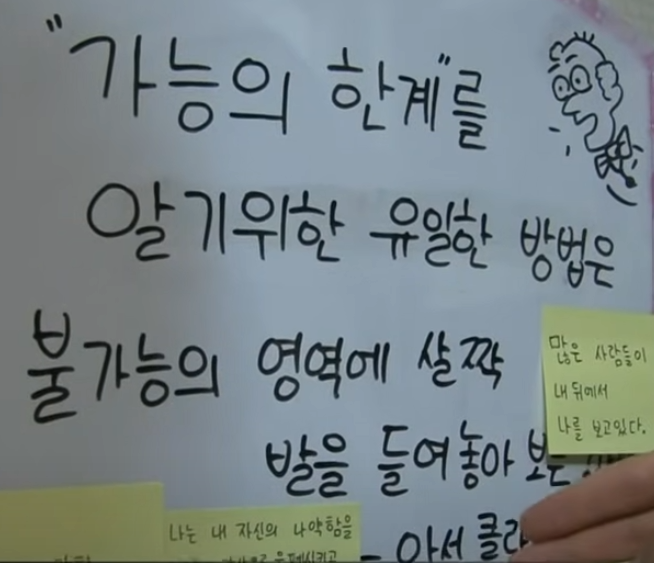 "가능의 한계"를
알기위한 유일한 방법은
불가능의 영역에 살짝
발을 들여놓아 보는
- 아서 클라
많은 사람들이
내 뒤에서
나를 보고있다.
나는 내 자신의 나약함을